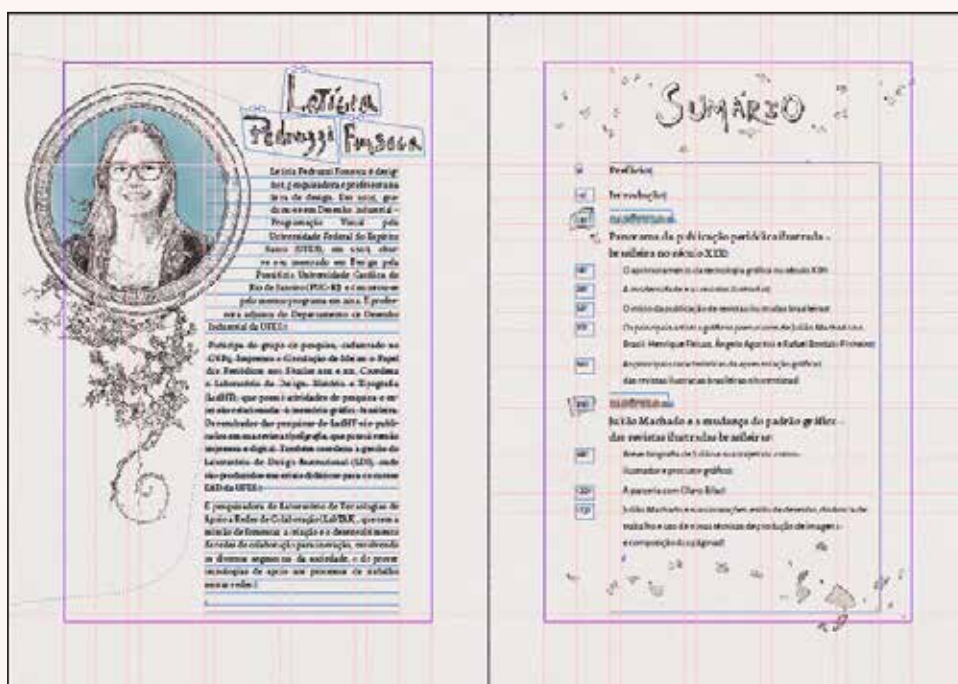 Letícia
Pedruzzi Fonseca
Letícia Pedruzzi Fonseca é desig-
ner, pesquisadora e professora na
área de design. Em 2002, gra-
duou-se em Desenho Industrial –
Programação Visual pela
Universidade Federal do Espírito
Santo (UFES), em
mestrado em Design pela
Pontifícia Universidade Católica do
Rio de Janeiro (PUC-RJ) e
pelo mesmo programa em 2012. É profes-
sora adjunta do Departamento de Desenho
Industrial da UFES.
Participa do grupo de pesquisa, cadastrado no
CNPq, Impresso e Circulação de Ideias: o Papel
dos Periódicos nos Séculos XIX e XX. Coordena
o Laboratório de Design, História e Tipografia
(LadHT), que possui atividades de pesquisa e ex-
tensão relacionadas à memória gráfica brasileira.
Os resultados das pesquisas do LadHT são publi-
cados em sua revista tipo&grafia, que possui versão
impressa e digital. Também coordena a gestão do
Laboratório de Design Instrucional (LDI), onde
são produzidos materiais didáticos para os cursos
EAD da UFES.
É pesquisadora do Laboratório de Tecnologias de
Apoio a Redes de Colaboração (LabTAR), que tem a
missão de fomentar a criação e o desenvolvimento
de redes de colaboração para inovação, envolvendo
os diversos segmentos da sociedade, e de prover
tecnologias de apoio aos processos de trabalho
nessas redes.
SUMÁRIO
Prefácio
Introdução
Panorama da publicação periódica ilustrada
brasileira no século XIX
O aprimoramento da tecnologia gráfica no século XIX
A modernidade e as revistas ilustradas
O início da publicação de revistas ilustradas brasileiras
Os principais artistas gráficos precursores de Julião Machado no
Brasil: Henrique Fleiuss, Ângelo Agostini e Rafael Bordalo Pinheiro
As principais características da apresentação gráfica
das revistas ilustradas brasileiras oitocentistas
Julião Machado e a mudança do padrão gráfico
das revistas ilustradas brasileiras
Breve biografia de Julião e sua trajetória como
ilustrador e produtor gráfico
A parceria com Olavo Bilac
Julião Machado e suas inovações: estilo de desenho, dinâmica de
trabalho e uso de novas técnicas de produção de imagens
e composição das páginas